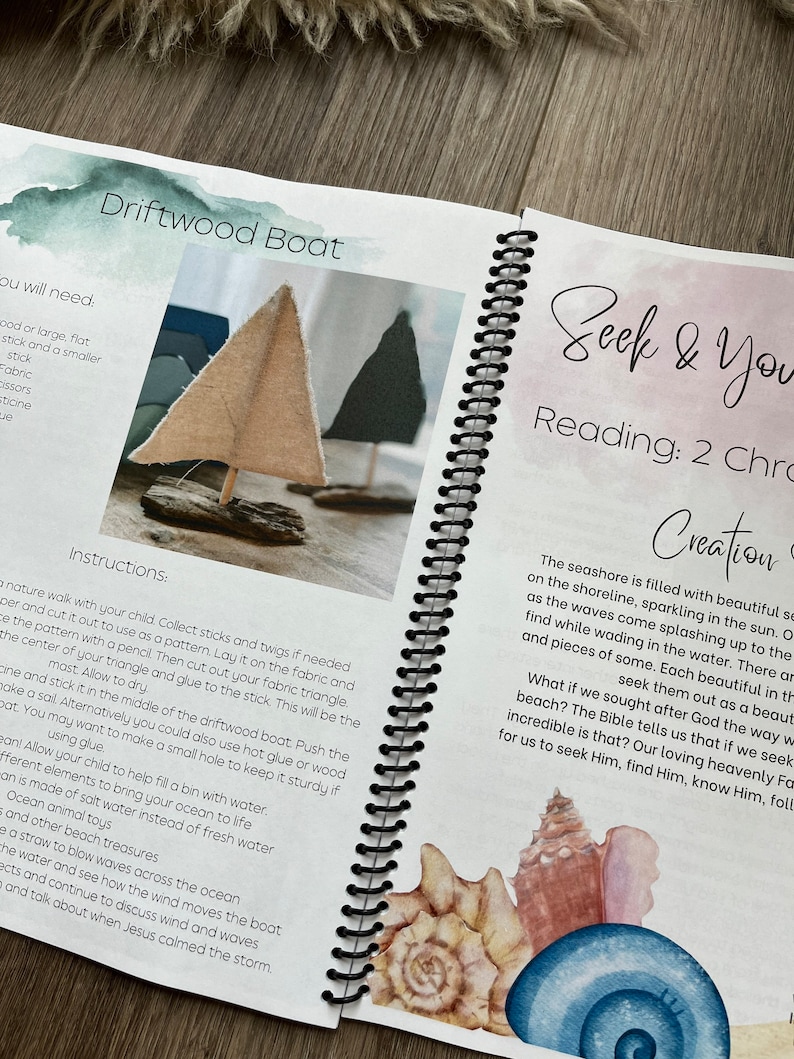 Driftwood Boat
you will need:
wood or large, flat
stick and a smaller
stick
Fabric
scissors
Instructions:
a nature walk with your child. Collect sticks and twigs if needed
and cut it out to use as a pattern. Lay it on the fabric and
the pattern with a pencil. Then cut out your fabric triangle.
the center of your triangle and glue to the stick. This will be the
mast. Allow to dry.
and stick it in the middle of the driftwood boat. Push the
make a sail. Alternatively you could also use hot glue or wood
You may want to make a small hole to keep it sturdy if
using glue.
Allow your child to help fill a bin with water.
different elements to bring your ocean to life
is made of salt water instead of fresh water
Ocean animal toys
and other beach treasures
a straw to blow waves across the ocean
the water and see how the wind moves the boat
and continue to discuss wind and waves
and talk about when Jesus calmed the storm.
Seek & You
Reading: 2 Chr
Creation
The seashore is filled with beautiful
on the shoreline, sparkling in the sun.
as the waves come splashing up to the
find while wading in the water. There
and pieces of some. Each beautiful in
seek them out as a
What if we sought after God the way
beach? The Bible tells us that if we seek
incredible is that? Our loving heavenly
for us to seek Him, find Him, know Him,